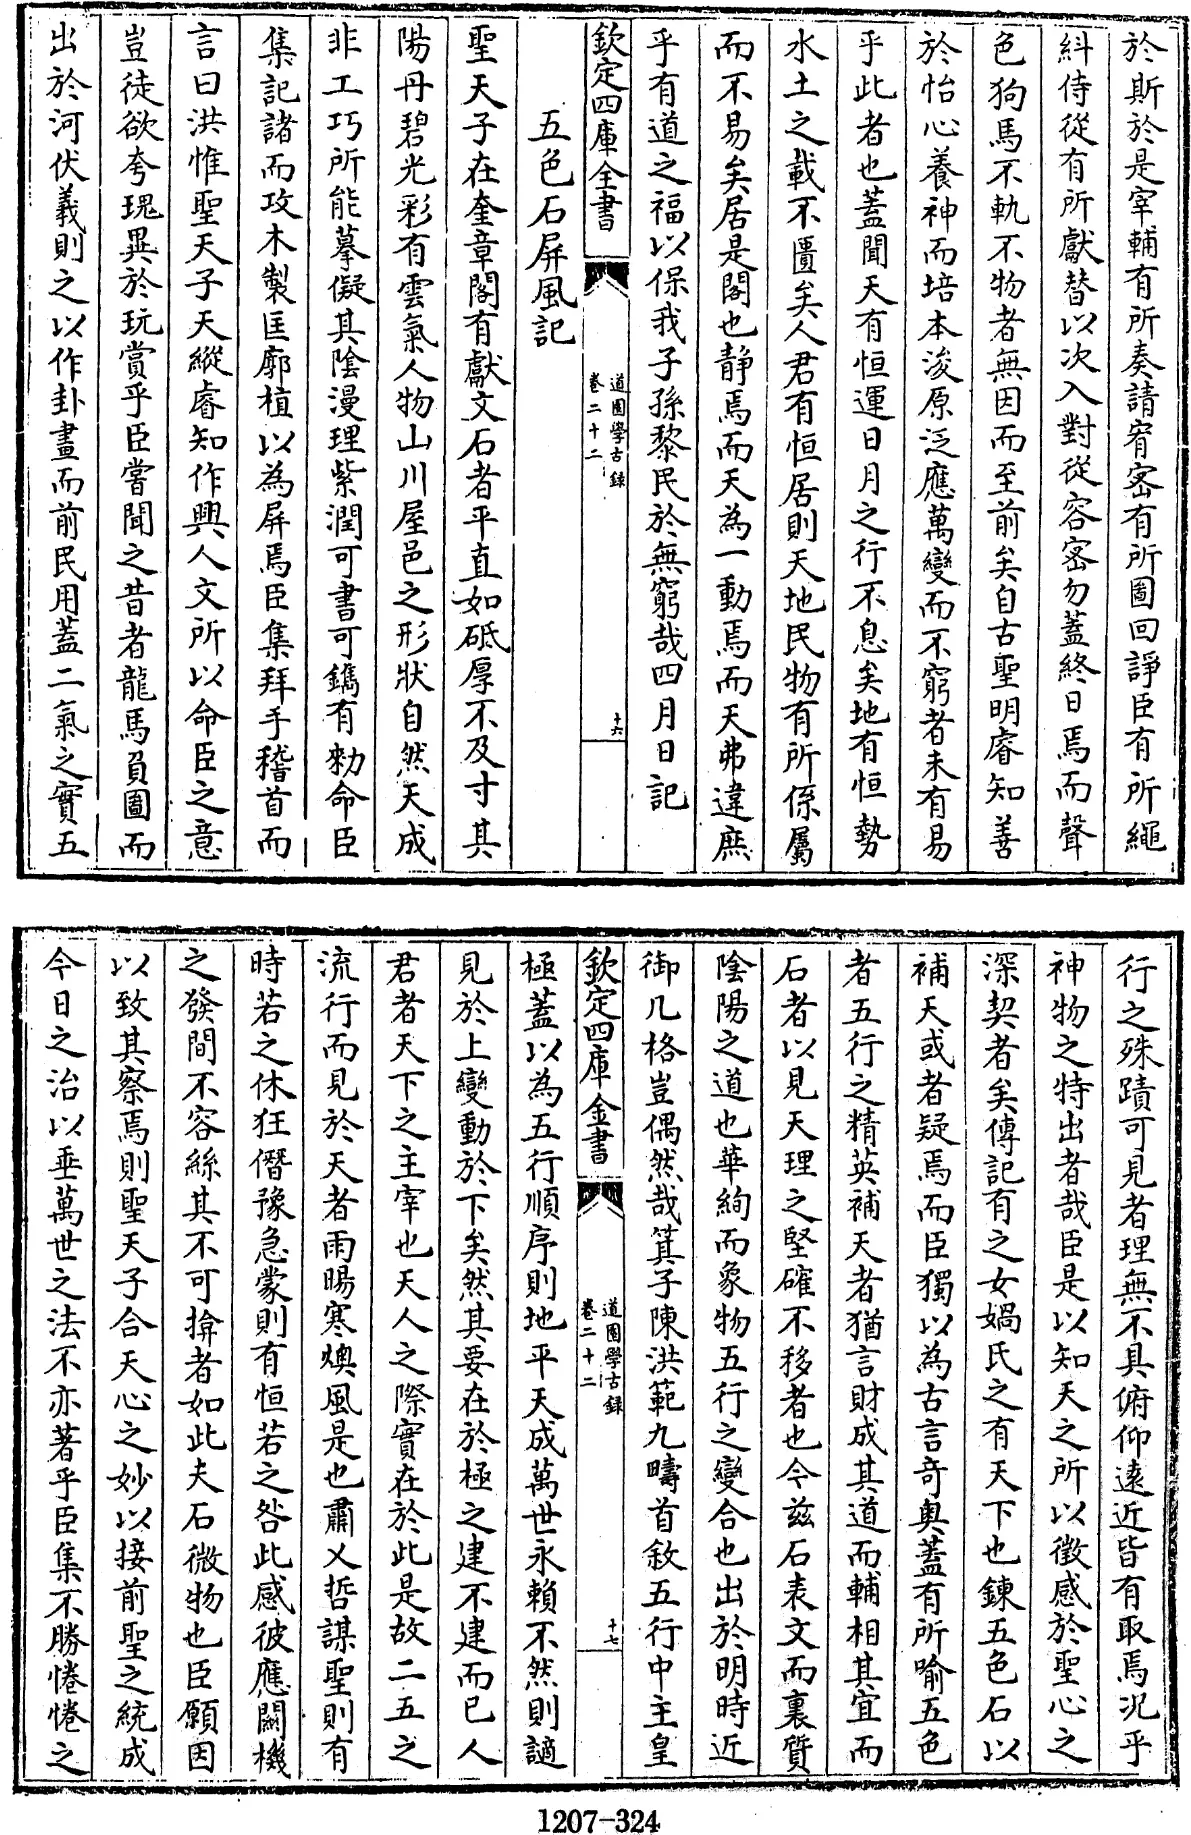 於斯於是宰輔有所奏請宥密有所圖回諍臣有所繩
糾侍從有所獻替以次入對從容密勿蓋終日焉而聲
色狗馬不軌不物者無因而至前矣自古聖明睿知善
於怡心養神而培本浚原泛應萬變而不窮者未有易
乎此者也蓋聞天有恒運日月之行不息矣地有恒勢
水土之載不匱矣人君有恒居則天地民物有所係屬
而不易矣居是閣也静焉而天為一動焉而天弗違庶
乎有道之福以保我子孫黎民於無窮哉四月日記
欽定四庫全書
道園學古録
卷二十二
十六
五色石屏風記
聖天子在奎章閣有獻文石者平直如砥厚不及寸其
陽丹碧光彩有雲氣人物山川屋邑之形狀自然天成
非工巧所能摹儗其陰漫理紫潤可書可鐫有勅命臣
集記諸而攻木製匡廓植以為屏焉臣集拜手稽首而
言曰洪惟聖天子天縱睿知作興人文所以命臣之意
豈徒欲夸瑰異於玩賞乎臣嘗聞之昔者龍馬負圖而
出於河伏羲則之以作卦畫而前民用蓋二氣之實五
行之殊蹟可見者理無不具俯仰遠近皆有取焉况乎
神物之特出者哉臣是以知天之所以徵感於聖心之
深契者矣傳記有之女媧氏之有天下也錬五色石以
補天或者疑焉而臣獨以為古言奇奥蓋有所喻五色
者五行之精英補天者猶言財成其道而輔相其宜而
石者以見天理之堅確不移者也今兹石表文而裏質
陰陽之道也華絢而象物五行之變合也出於明時近
御几格豈偶然哉箕子陳洪範九疇首敘五行中主皇
欽定四庫全書
道園學古録
卷二十二
十七
極蓋以為五行順序則地平天成萬世永賴不然則謫
見於上變動於下矣然其要在於極之建不建而已人
君者天下之主宰也天人之際實在於此是故二五之
流行而見於天者雨暘寒燠風是也肅乂哲謀聖則有
時若之休狂僭豫急蒙則有恒若之咎此感彼應闗機
之發間不容絲其不可揜者如此夫石微物也臣願因
以致其察焉則聖天子合天心之妙以接前聖之統成
今日之治以垂萬世之法不亦著乎臣集不勝惓惓之
1207-324